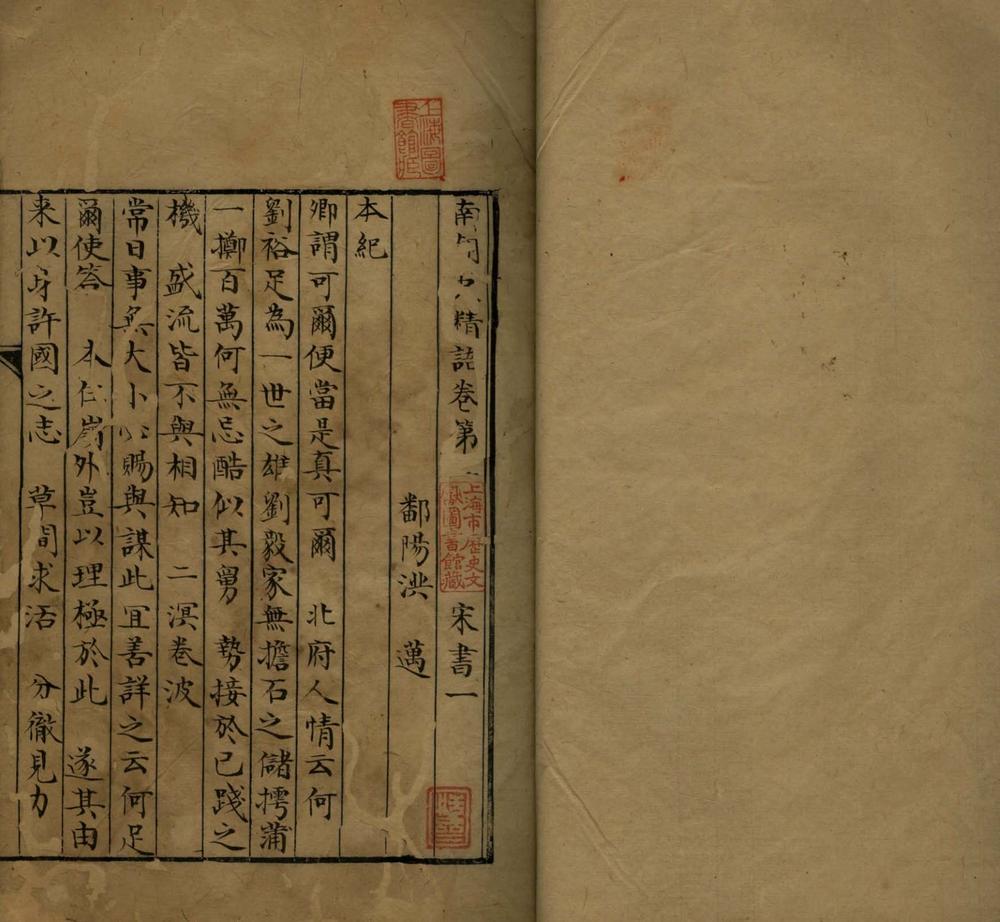 南朝史精語卷第一 宋書一
鄱陽洪 邁
本紀
卿謂可爾便當是真可爾 北府人情云何
劉裕足為一世之雄劉毅家無擔石之儲摴蒲
一擲百萬何無忌酷似其舅 勢接於已踐之
機 盛流皆不與相知 二溟卷波
常日事無大小必賜與謀此宜善詳之云何足
爾使答 本任嶺外豈以理極於此 遂其由
来以身許國之志 草間求活 分徹見力
上海圖書館藏
上海市歷史文獻圖書館藏